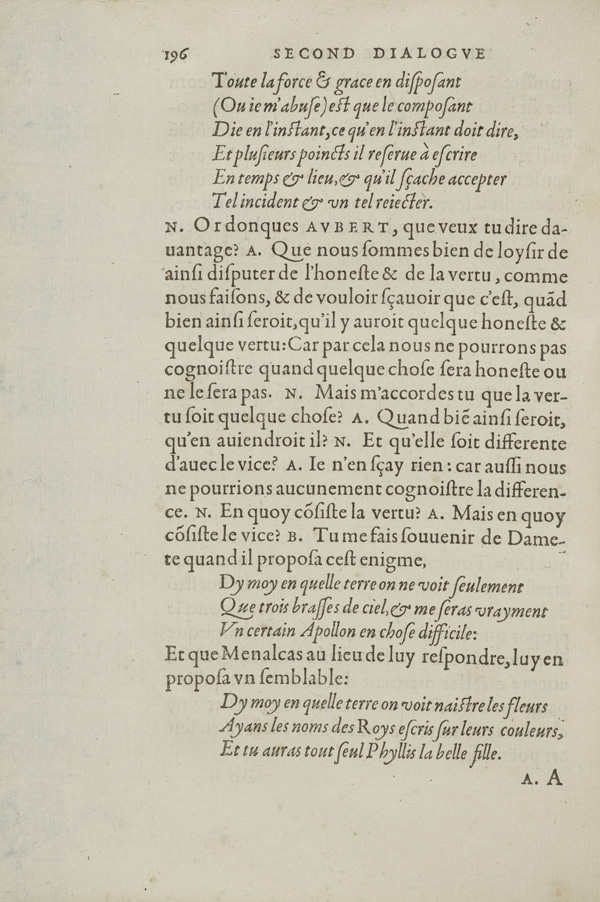 196 SECOND DIALOGVE
Toute la force & grace en diſpoſant
(Ou ie m'abuſe) eſt que le compoſant
Die en l'inſtant, ce qu'en l'inſtant doit dire,
Et pluſieurs poincts il reſerue à eſcrire
En temps & lieu, & qu'il ſçache accepter
Tel incident & vn tel reiecter.
N. Or donques AVBERT, que veux tu dire da-
uantage? A. Que nous ſommes bien de loyſir de
ainſi diſputer de l'honeſte & de la vertu, comme
nous faiſons, & de vouloir ſçauoir que c'eſt, quãd
bien ainſi ſeroit, qu'il y auroit quelque honeſte &
quelque vertu: Car par cela nous ne pourrons pas
cognoiſtre quand quelque choſe ſera honeſte ou
ne le ſera pas. N. Mais m'accordes tu que la ver-
tu ſoit quelque choſe? A. Quand biẽ ainſi ſeroit,
qu'en auiendroit il? N. Et qu'elle ſoit differente
d'auec le vice? A. Ie n'en ſçay rien: car auſſi nous
ne pourrions aucunement cognoiſtre la differen-
ce. N. En quoy cõſiſte la vertu? A. Mais en quoy
cõſiſte le vice? B. Tu me fais ſouuenir de Dame-
te quand il propoſa ceſt enigme,
Dy moy en quelle terre on ne voit ſeulement
Que trois braſſes de ciel, & me ſeras vrayment
Vn certain Apollon en choſe difficile:
Et que Menalcas au lieu de luy reſpondre, luy en
propoſa vn ſemblable:
Dy moy en quelle terre on voit naiſtre les fleurs
Ayans les noms des Roys eſcris ſur leurs couleurs,
Et tu auras tout ſeul Phyllis la belle fille.
A. A